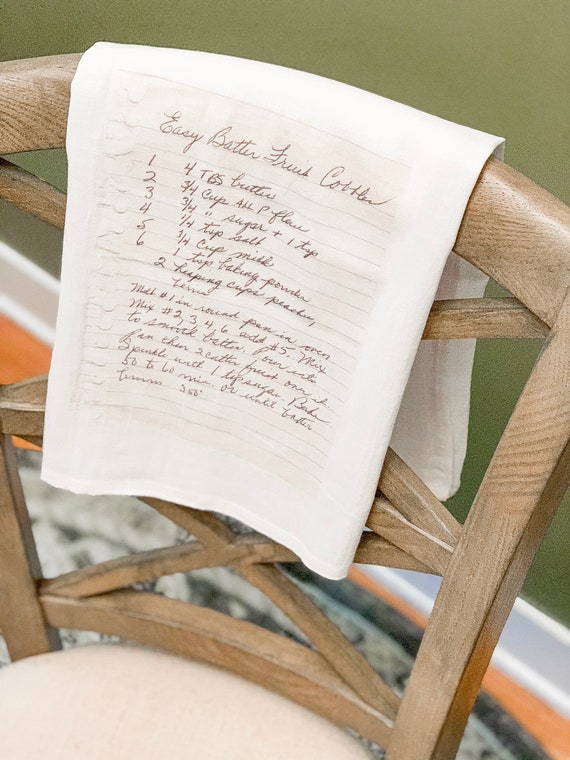 Easy Batter Fruit Cobbler
1 4 TBS butter
2 3/4 Cup All P flour
3 3/4 " sugar + 1 tsp
4 1/4 tsp salt
5 3/4 Cup milk
6 1 tsp baking powder
2 heaping cups peaches,
Melt #1 in round pan in oven.
Mix #2, 3, 4, 6 add #5. Mix
to smooth batter. Pour into
Pan then scatter fruit over it.
Sprinkle with 1 tsp sugar. Bake
50 to 60 min. or until batter
browns 350°